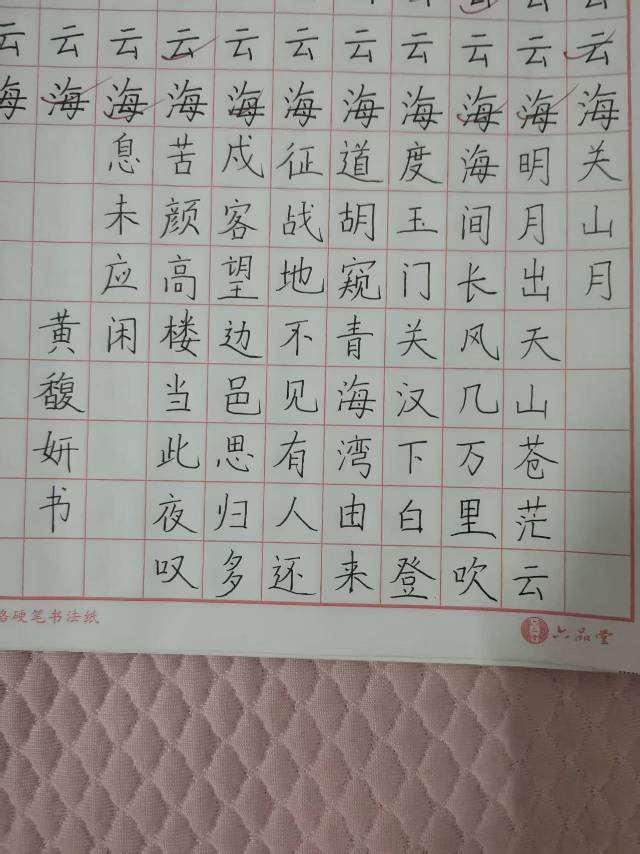 云云云云云云云云云云云
海海海海海海海海海海海
关山月
明月出天山苍茫云
海间长风几万里吹
度玉门关汉下白登
道胡窥青海湾由来
征战地不见有人还
戍客望边邑思归多
苦颜高楼当此夜叹
息未应闲
黄馥妍书
格硬笔书法纸
六品堂